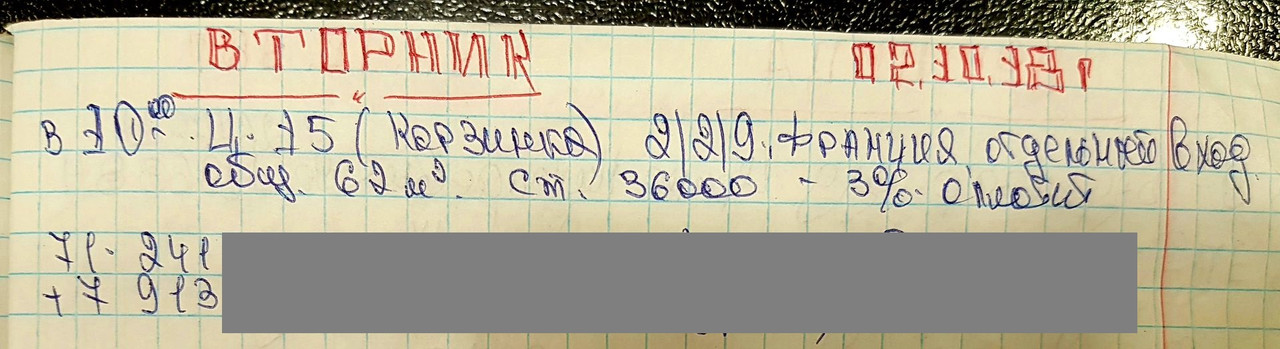 ВТОРНИК 02.10.18 г
в 10⁰⁰. Ц-15 (Корзинка) 2/2/9, Франция, отдельный вход.
общ. 62 м². ст. 36000 - 3%.
71- 241
+7 913